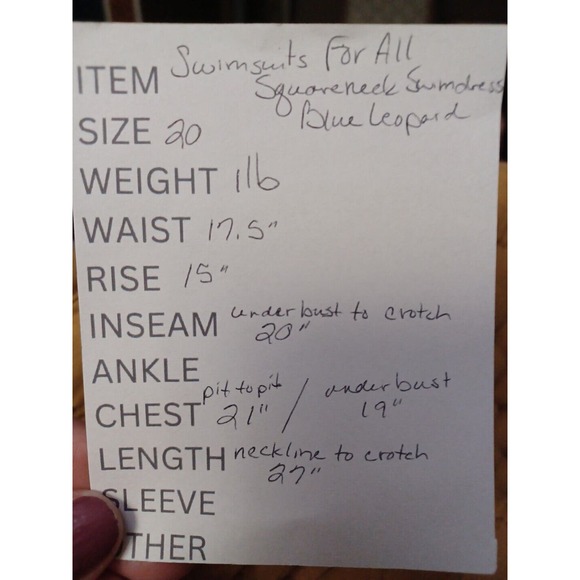 ITEM Swimsuits For All
Squareneck Swimdress
Blue Leopard
SIZE 20
WEIGHT 1lb
WAIST 17.5"
RISE 15"
INSEAM underbust to crotch
20"
ANKLE
CHEST pit to pit 21" / underbust 19"
LENGTH neckline to crotch
27"
SLEEVE
THER